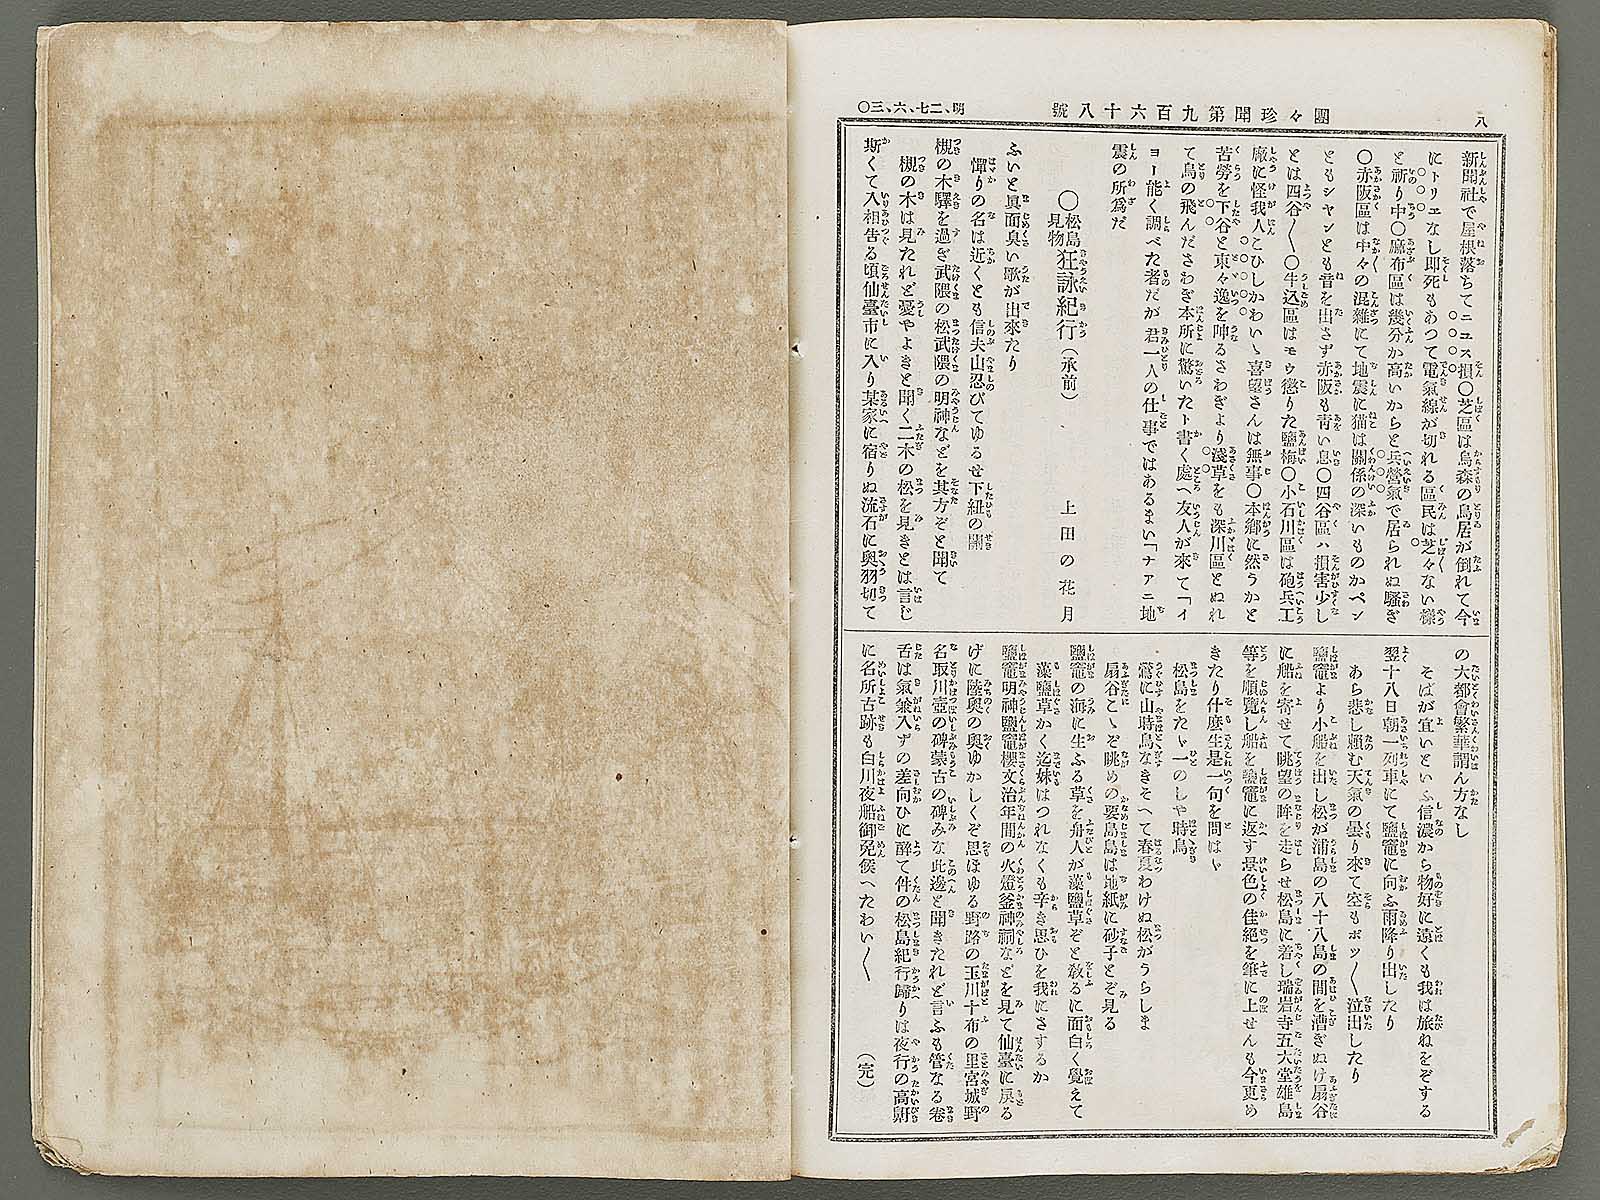 八
團々珍聞第九百六十八號
明、二七、六、三〇
新聞社で屋根落ちてニユース損〇芝區は烏森の鳥居が倒れて今
にトリエなし即死もあつて電氣線が切れる區民は芝々ない樣
と祈り中〇麻布區は幾分か高いからと兵營氣で居られぬ騷ぎ
〇赤阪區は中々の混雜にて地震に猫は關係の深いものかペン
ともシヤンとも音を出さず赤阪も靑い息〇四谷區ハ損害少し
とは四谷〱〇牛込區はモウ懲りた鹽梅〇小石川區は砲兵工
廠に怪我人こひしかわいゝ喜望さんは無事〇本鄕に然うかと
苦勞を下谷と東々逸を呻るさわぎより淺草をも深川區とぬれ
て鳥の飛んださわぎ本所に驚いたト書く處へ友人が來て「イ
ヨー能く調べた者だが君一人の仕事ではあるまい「ナアニ地
震の所爲だ
〇松島見物狂詠紀行（承前）　上田の花月
ふいと眞面臭い歌が出來たり
憚りの名は近くとも信夫山忍びてゆるせ下紐の關
槻の木驛を過ぎ武隈の松武隈の明神などを其方ぞと聞て
槻の木は見たれど憂やよきと聞く二木の松を見きとは言じ
斯くて入相告る頃仙臺市に入り某家に宿りぬ流石に奥羽切て
の大都會繁華謂ん方なし
そばが宜いといふ信濃から物好に遠くも我は旅ねをぞする
翌十八日朝一列車にて鹽竈に向ふ雨降り出したり
あら悲し賴む天氣の曇り來て空もポツ〱泣出したり
鹽竈より小船を出し松が浦島の八十八島の間を漕ぎぬけ扇谷
に船を寄せて眺望の眸を走らせ松島に着し瑞岩寺五大堂雄島
等を順覽し船を鹽竈に返す景色の佳絕を筆に上せんも今更め
きたり什麼生是一句を問はゞ
松島をたゞ一のしや時鳥
鶯に山時鳥なきそへて春夏わけぬ松がうらしま
扇谷こゝぞ眺めの要島島は地紙に砂子とぞ見る
鹽竈の海に生ふる草を舟人が藻鹽草ぞと敎るに面白く覺えて
藻鹽草かく迄妹はつれなくも辛き思ひを我にさするか
鹽竈明神鹽竈櫻文治年間の火燈釜神祠などを見て仙臺に戾る
げに陸奥の奥ゆかしくぞ思ほゆる野路の玉川十布の里宮城野
名取川壺の碑蒙古の碑みな此邊と聞きたれど言ふも管なる卷
舌は氣兼入ずの差向ひに醉て件の松島紀行歸りは夜行の高鼾
に名所古跡も白川夜船御免候へたわい〱　（完）